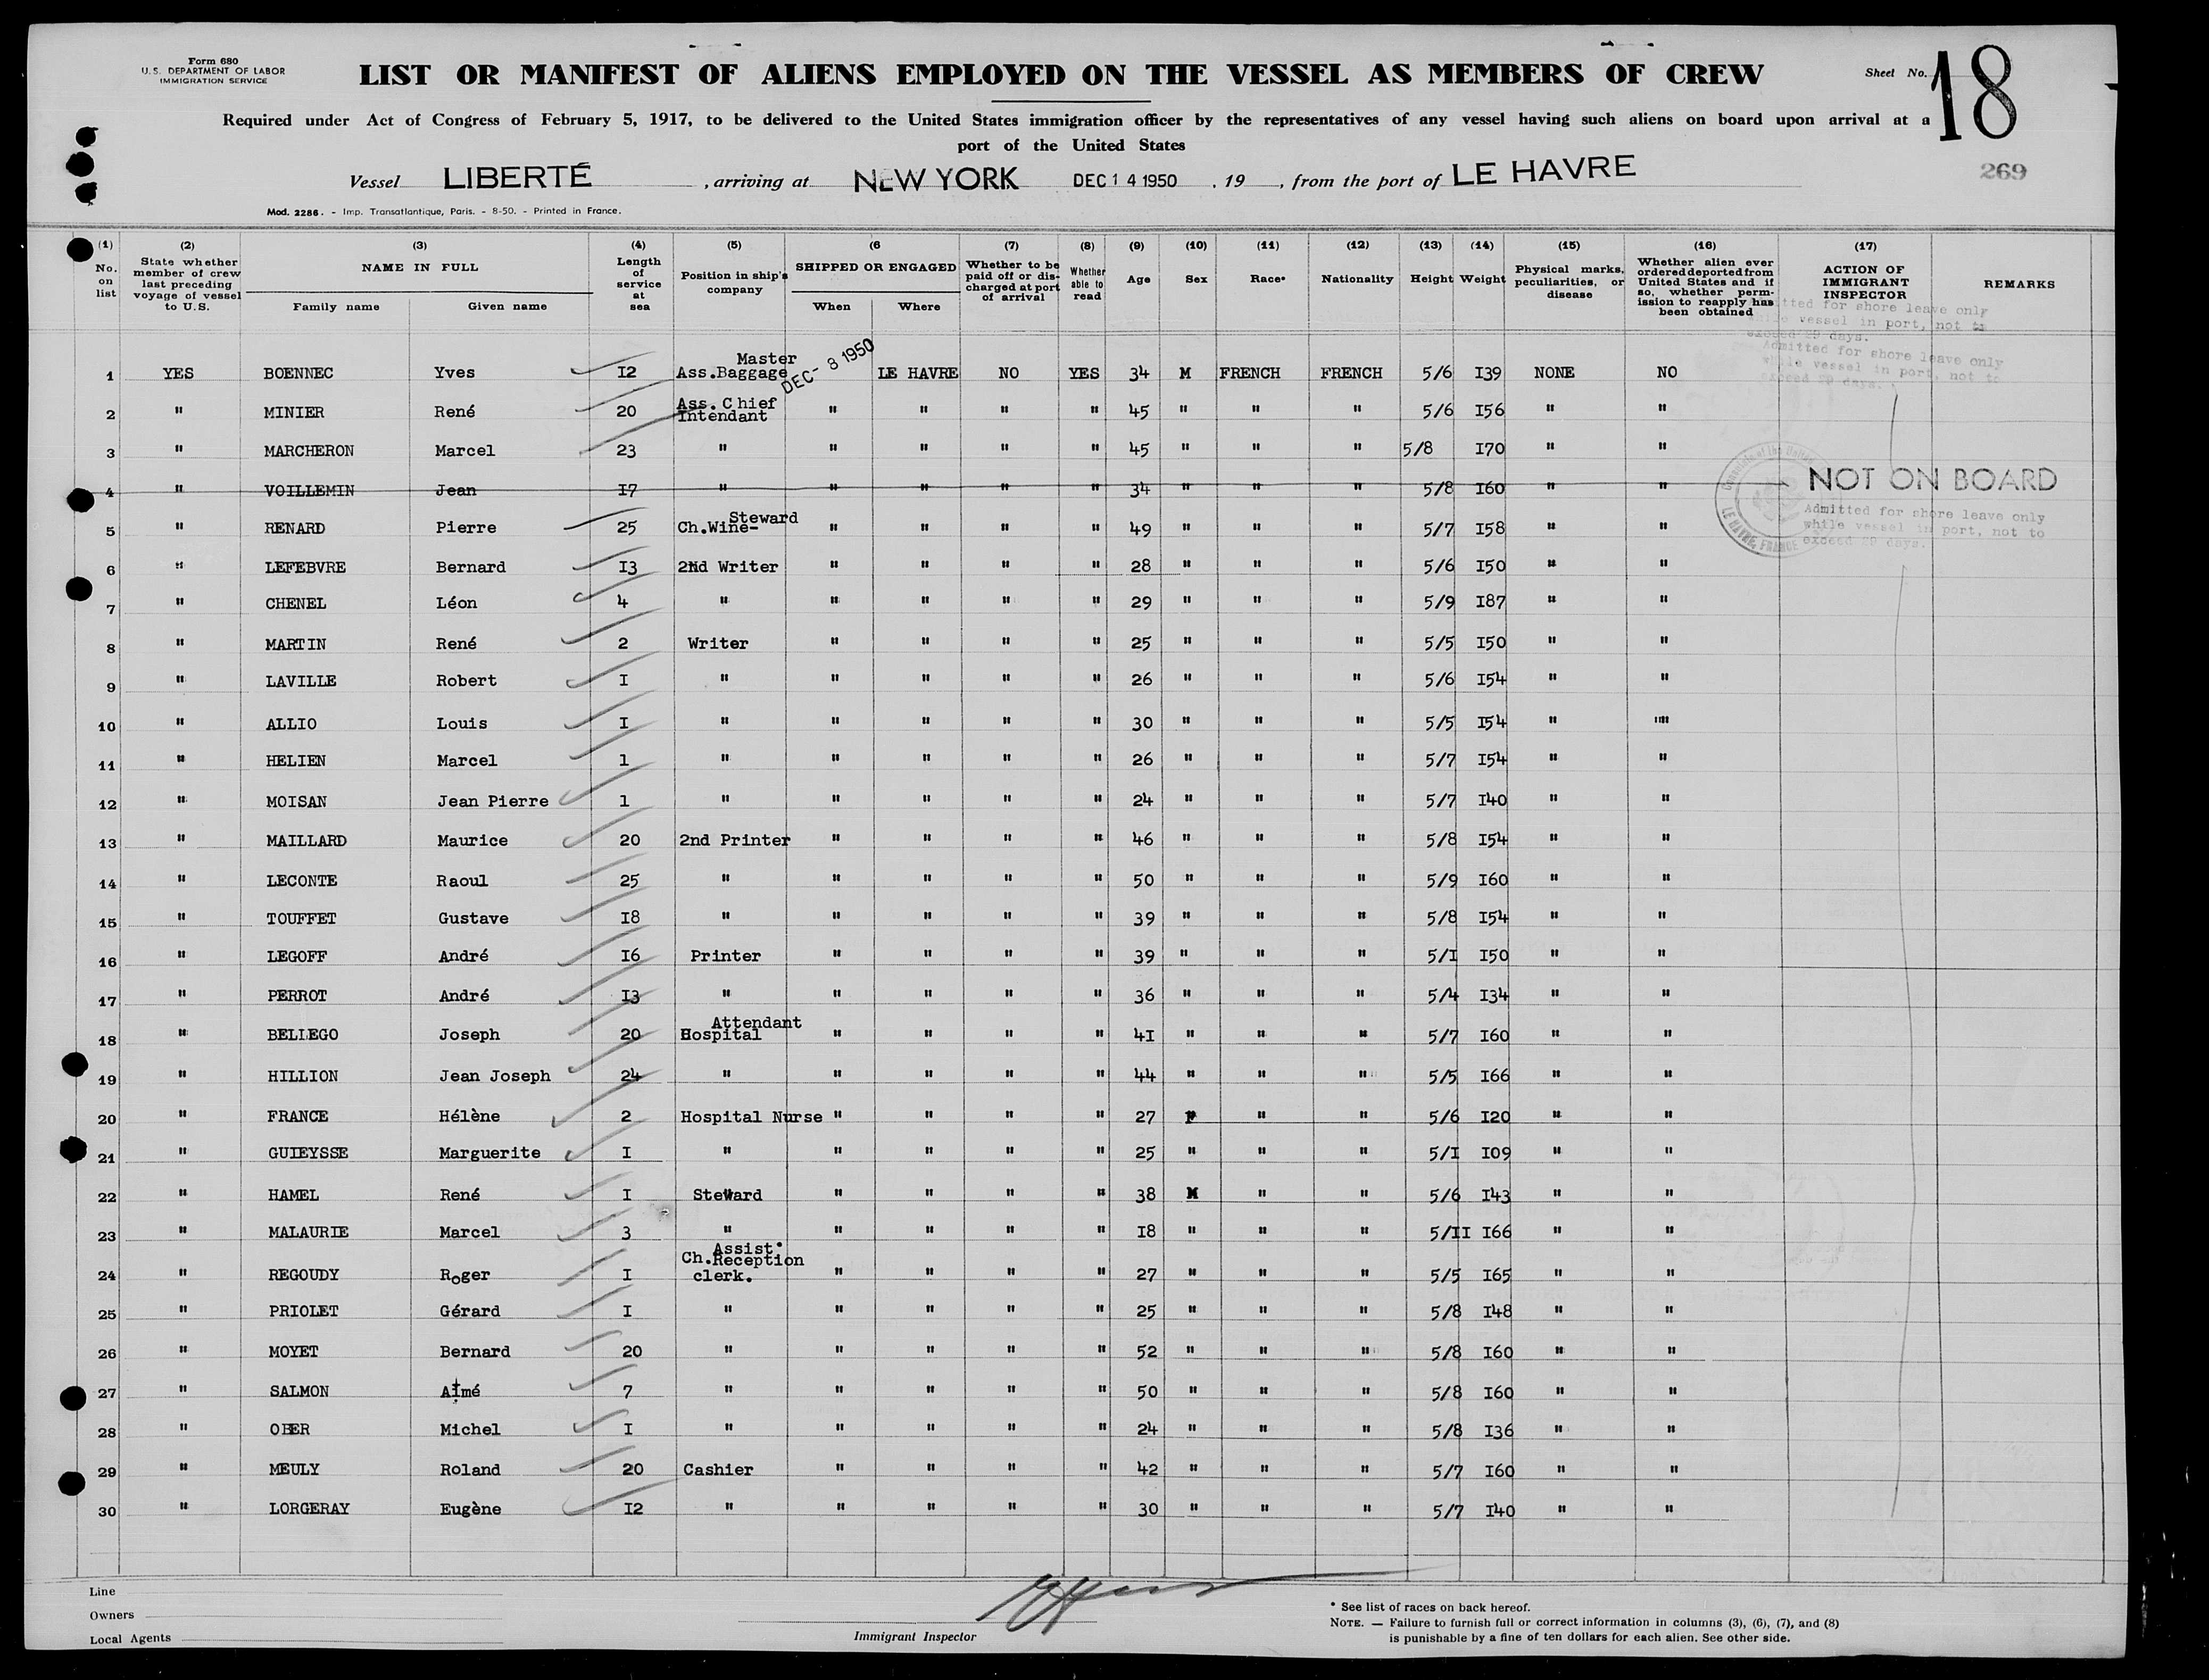 Form 680
U. S. DEPARTMENT OF LABOR
IMMIGRATION SERVICE
LIST OR MANIFEST OF ALIENS EMPLOYED ON THE VESSEL AS MEMBERS OF CREW
Sheet No. 18
Required under Act of Congress of February 5, 1917, to be delivered to the United States immigration officer by the representatives of any vessel having such aliens on board upon arrival at a
port of the United States
269
Vessel LIBERTÉ , arriving at NEW YORK DEC 14 1950 , 19 , from the port of LE HAVRE
Mod. 2286. - Imp. Transatlantique, Paris. - 8-50. - Printed in France.
(1) No. on list
(2) State whether member of crew last preceding voyage of vessel to U.S.
(3) NAME IN FULL Family name Given name
(4) Length of service at sea
(5) Position in ship's company
(6 SHIPPED OR ENGAGED When Where
(7) Whether to be paid off or discharged at port of arrival
(8) Whether able to read
(9) Age
(10) Sex
(11) Race*
(12) Nationality
(13) Height
(14) Weight
(15) Physical marks, peculiarities, or disease
(16) Whether alien ever ordered deported from United States and if so, whether permission to reapply has been obtained
(17) ACTION OF IMMIGRANT INSPECTOR
REMARKS
Admitted for shore leave only
while vessel in port, not to
exceed 29 days.
1 YES BOENNEC Yves 12 Ass.Baggage Master DEC - 8 1950 LE HAVRE NO YES 34 M FRENCH FRENCH 5/6 139 NONE NO
2 " MINIER René 20 Ass. Chief Intendant " " " " 45 " " " 5/6 156 " "
3 " MARCHERON Marcel 23 " " " " " 45 " " " 5/8 170 " "
4 " VOILLEMIN Jean 17 " " " " " 34 " " " 5/8 160 " " NOT ON BOARD
5 " RENARD Pierre 25 Ch.Wine-Steward " " " " 49 " " " 5/7 158 " "
Admitted for shore leave only
while vessel in port, not to
exceed 29 days.
6 " LEFEBVRE Bernard 13 2nd Writer " " " " 28 " " " 5/6 150 " "
7 " CHENEL Léon 4 " " " " " 29 " " " 5/9 187 " "
8 " MARTIN René 2 Writer " " " " 25 " " " 5/5 150 " "
9 " LAVILLE Robert I " " " " " 26 " " " 5/6 154 " "
10 " ALLIO Louis I " " " " " 30 " " " 5/5 154 " ""
11 " HELIEN Marcel 1 " " " " " 26 " " " 5/7 154 " "
12 " MOISAN Jean Pierre 1 " " " " " 24 " " " 5/7 140 " "
13 " MAILLARD Maurice 20 2nd Printer " " " " 46 " " " 5/8 154 " "
14 " LECONTE Raoul 25 " " " " " 50 " " " 5/9 160 " "
15 " TOUFFET Gustave 18 " " " " " 39 " " " 5/8 154 " "
16 " LEGOFF André 16 Printer " " " " 39 " " " 5/1 150 " "
17 " PERROT André 13 " " " " " 36 " " " 5/4 134 " "
18 " BELLEGO Joseph 20 Hospital Attendant " " " " 41 " " " 5/7 160 " "
19 " HILLION Jean Joseph 24 " " " " " 44 " " " 5/5 166 " "
20 " FRANCE Hélène 2 Hospital Nurse " " " " 27 F " " 5/6 120 " "
21 " GUIEYSSE Marguerite I " " " " " 25 " " " 5/1 109 " "
22 " HAMEL René I Steward " " " " 38 M " " 5/6 143 " "
23 " MALAURIE Marcel 3 " " " " " 18 " " " 5/11 166 " "
24 " REGOUDY Roger I Assist. Ch.Reception clerk. " " " " 27 " " " 5/5 165 " "
25 " PRIOLET Gérard I " " " " " 25 " " " 5/8 148 " "
26 " MOYET Bernard 20 " " " " " 52 " " " 5/8 160 " "
27 " SALMON Aimé 7 " " " " " 50 " " " 5/8 160 " "
28 " OBER Michel I " " " " " 24 " " " 5/8 136 " "
29 " MEULY Roland 20 Cashier " " " " 42 " " " 5/7 160 " "
30 " LORGERAY Eugène 12 " " " " " 30 " " " 5/7 140 " "
Line
Owners
Local Agents
Immigrant Inspector
* See list of races on back hereof.
NOTE. — Failure to furnish full or correct information in columns (3), (6), (7), and (8)
is punishable by a fine of ten dollars for each alien. See other side.